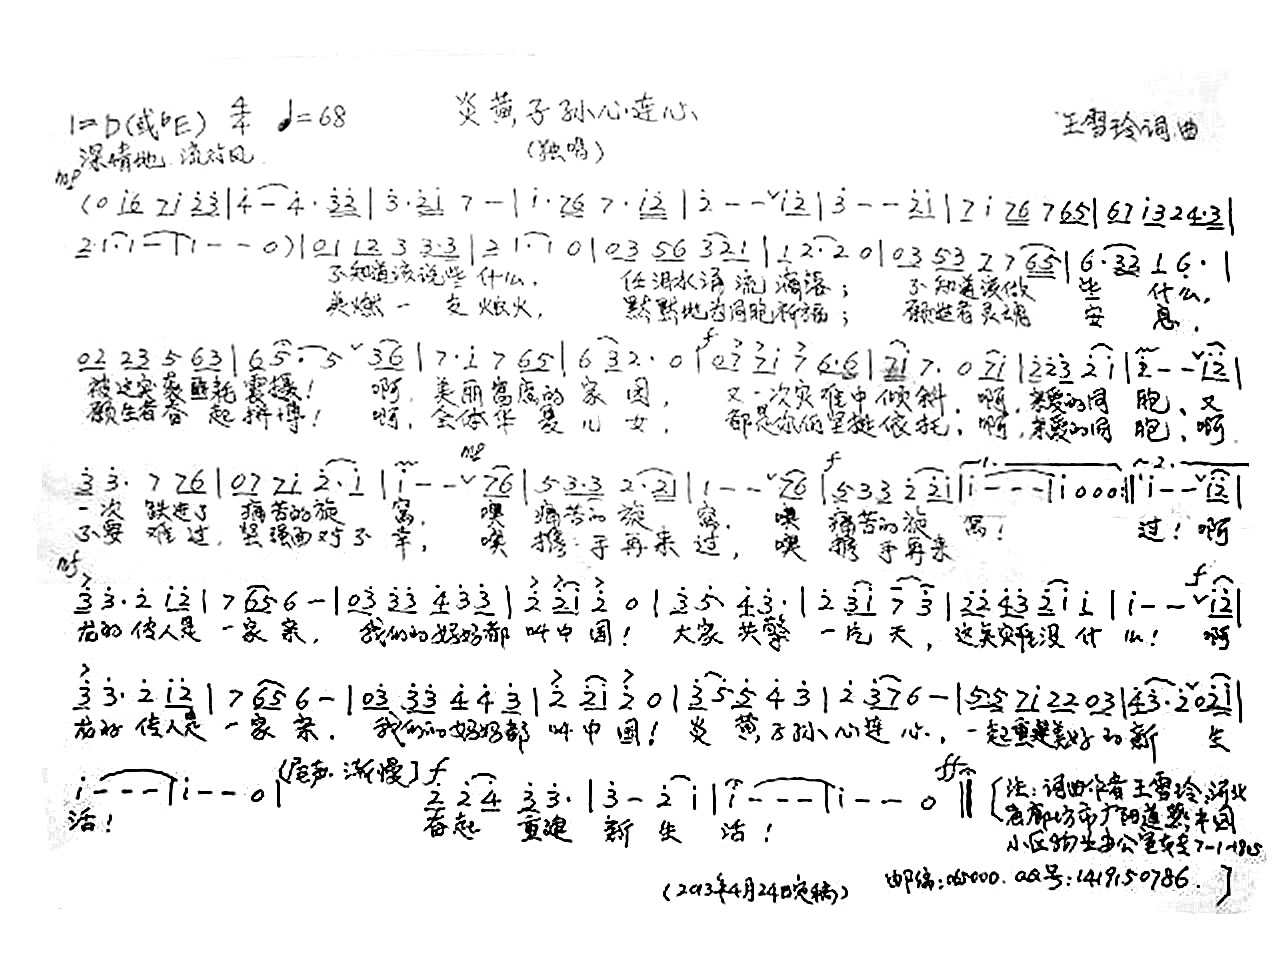 炎黄子孙心连心
1=D(或♭E) 4/4 ♩=68
(独唱)
王雪玲词曲
深情地 流行风
mp
(0 i6 7i 23|4 - 4·32|3·2i 7 -|i·76 7·i2|2 - - i2|3 - - 2i|7 i 76 765|67 i3 24·3|
2·i·i - |i - - 0)|01 12 3 3·3|2 1·1 0|03 56 321|1 2·2 0|03 53 2 7 65|6·32 1 6·|
不知道该说些 什么, 任泪水 流 滴落; 不知道该做 些 什么,
点燃一支烛火, 默默地为同胞祈福; 愿逝者灵魂 安 息,
02 23 5 63|65·5 36|7·i 7 65|6 32·0|07 7i 7 6·6|7i 7·0 7i|223 2i|i - - i2|
f
被这突袭噩耗震撼! 啊, 美丽富庶的家园, 又一次灾难中倾斜, 啊, 亲爱的同胞, 又
愿生者奋起拼搏! 啊, 全体华夏儿女, 都是你们坚挺依托, 啊, 亲爱的同胞, 啊
mp f
3 3·7 76|07 7i 2·i|i - - 76|5 3·3 2·2i|1 - - 76|5 3 3 2 2i|i - - -|i 0 0 0:|i - - i2|
一次 跌进了 痛苦的旋 窝, 噢 痛苦的旋 窝, 噢 痛苦的旋 窝! 过! 啊
不要 难过, 坚强面对不幸, 噢 携手再来过, 噢 携手再来
mf f
3 3·2 i2|7 65 6 -|03 33 4 33|2 2i 2 0|3 5 4 3·|2 3i 7 3|22 43 2i i|i - - i2|
龙的传人是 一家亲, 我们的妈妈都 叫中国! 大家共擎 一片天, 这点灾难没什么! 啊
3 3·2 i2|7 65 6 -|03 33 4 4 3|2 2i 2 0|3 5 5 4 3|2·376 -|55 7i 22 03|43·2 02i|
龙的传人是 一家亲, 我们的妈妈都 叫中国! 炎黄子孙心连心, 一起重建美好的新 生
(尾声·渐慢) f ff
i - - -|i - - 0| 2 24 33·|3 - 2 i|i - - -|i - - 0‖
活! 奋起 重建 新 生 活!
(注:词曲作者王雪玲,河北
省廊坊市广阳道
小区物业办公室转交7-1-1805
邮编:065000. QQ号:1419150786.]
(2013年4月24日定稿)